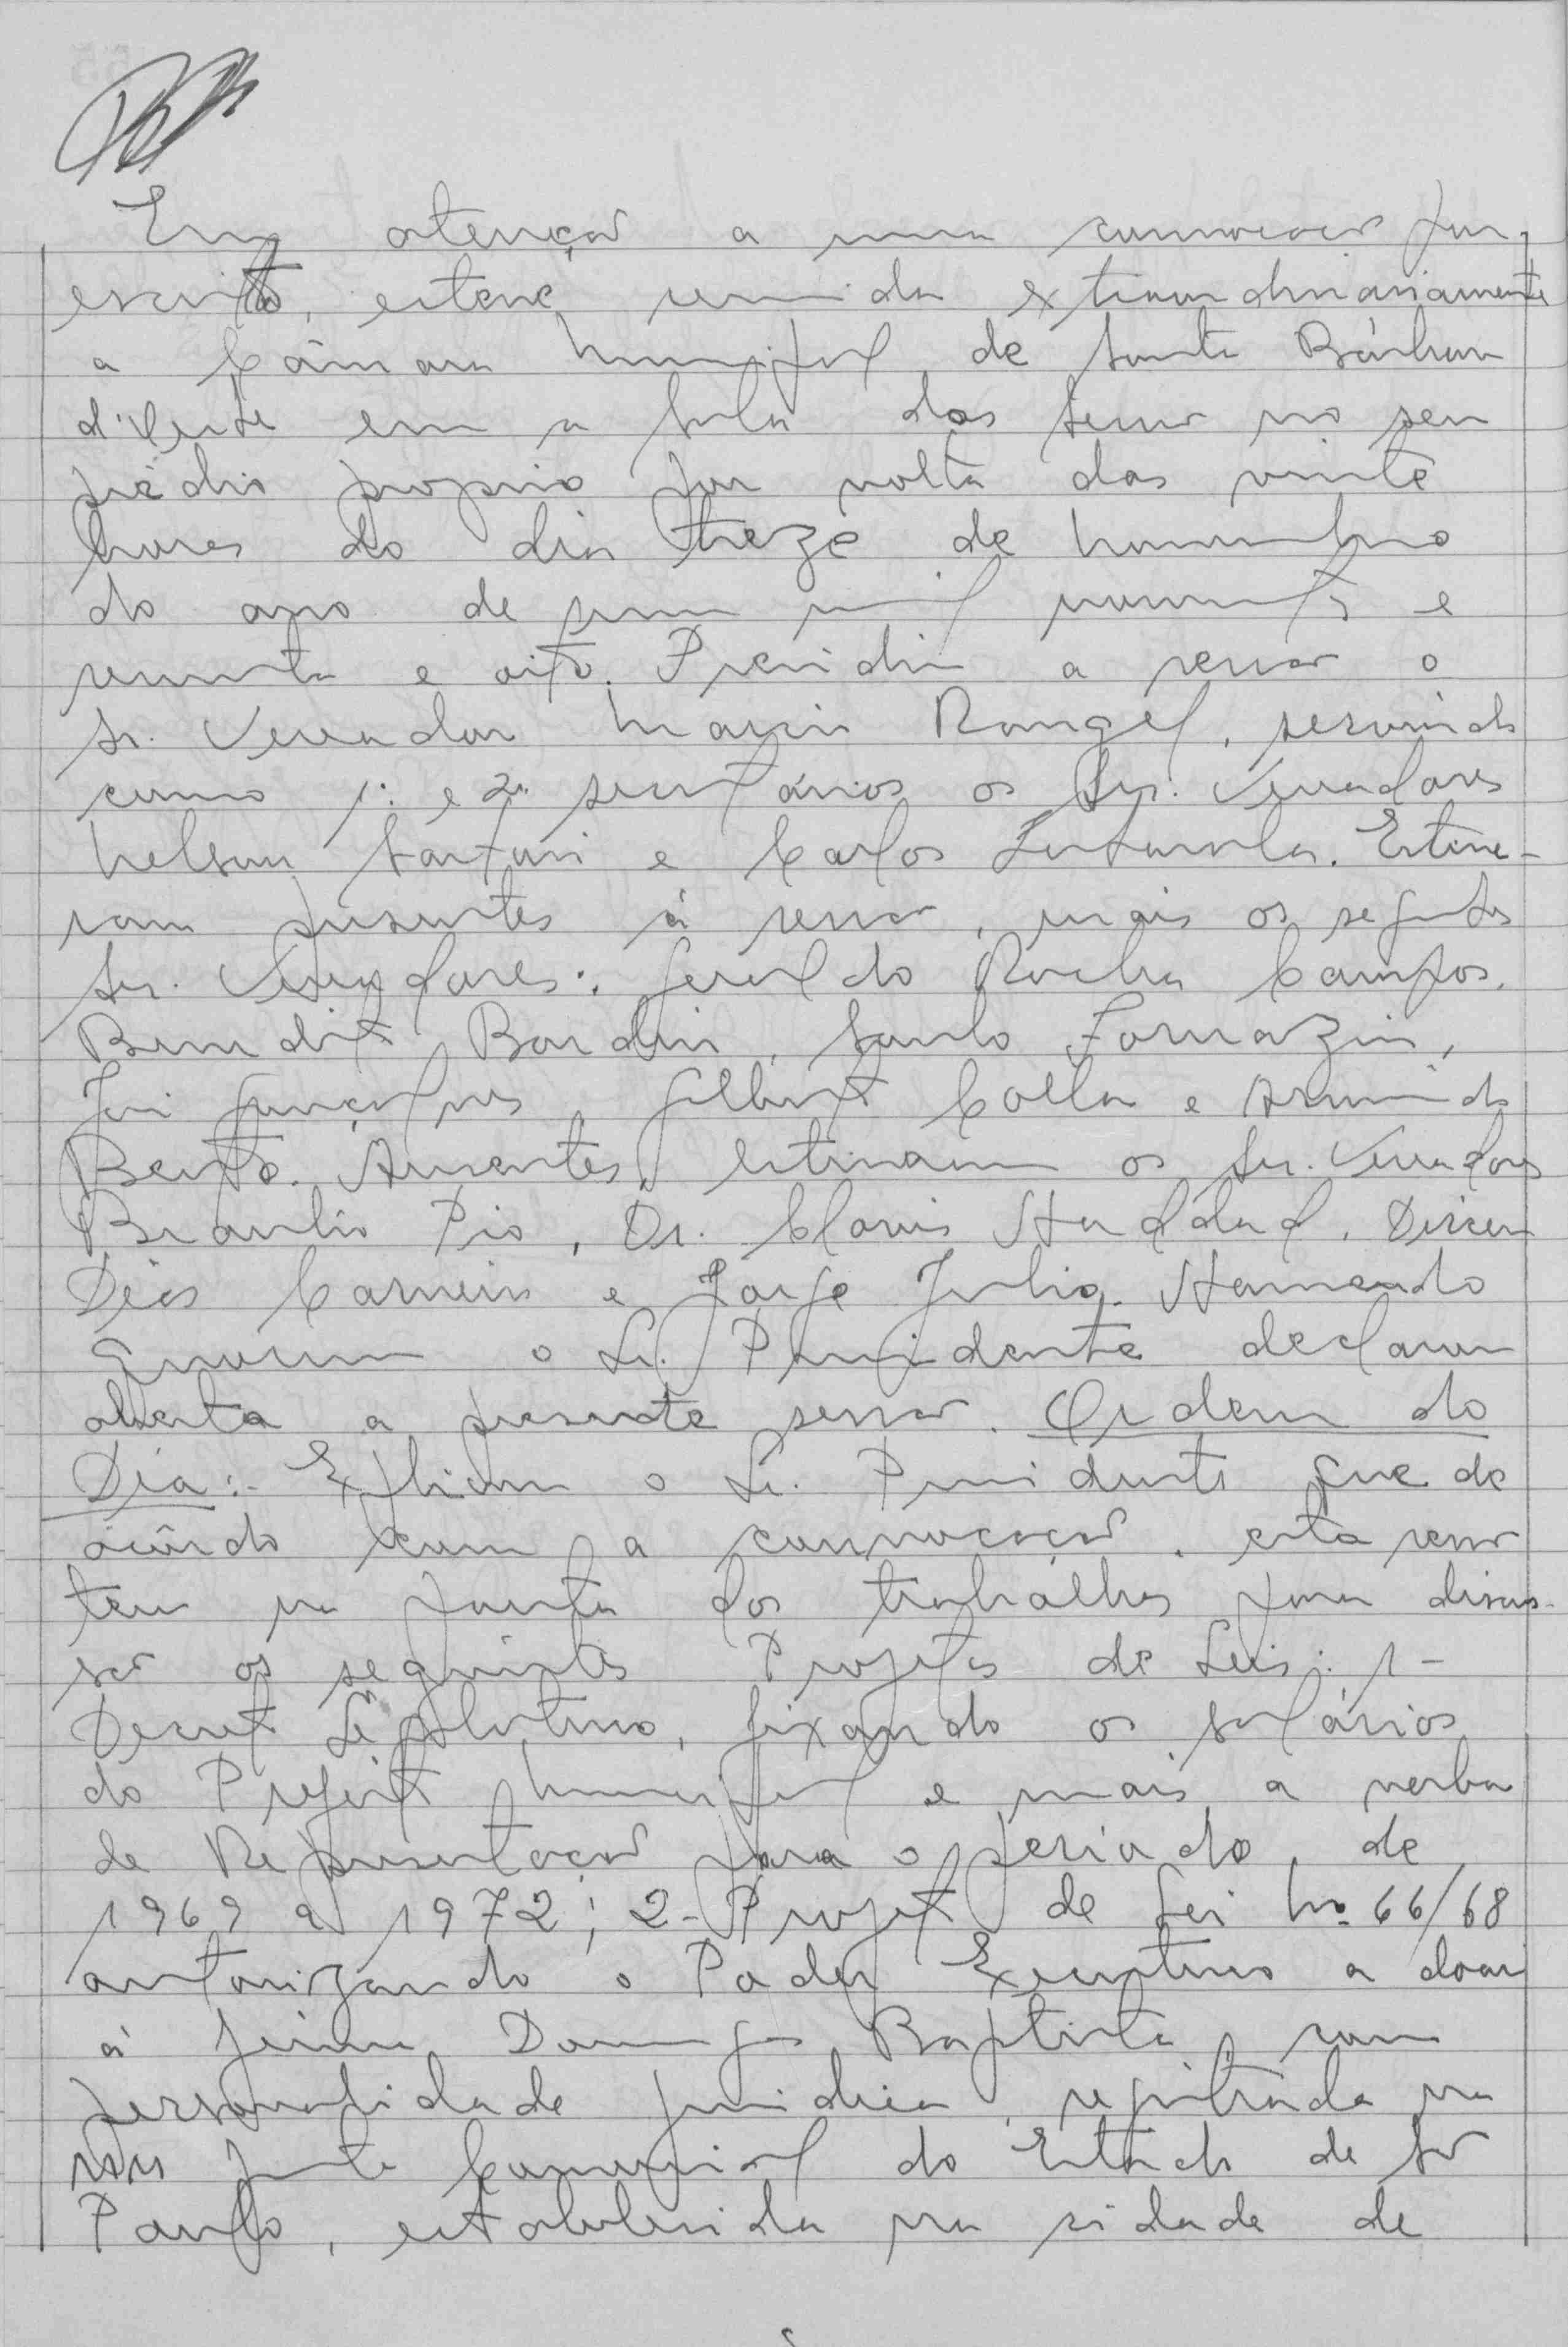 Em atenção a uma convocação por
escrito, esteve reunida extraordinariamente
a Câmara Municipal de Santa Bárbara
d'Oeste em a sala das sessões no seu
prédio proprio por volta das vinte
horas do dia treze de novembro
do ano de um mil novecentos e
sessenta e oito. Presidiu a sessão o
Sr. Vereador Mario Rangel, servindo
como 1º e 2º secretários os Srs. Vereadores
Nelson Sartori e Carlos Estive-
ram presentes à sessão, mais os seguintes
Srs. Vereadores: Geraldo Rocha Campos,
Benedito Bordin, Santo Fornazin,
Gonçalves, Gilberto Colla e Armindo
Bento. Ausentes, estiveram os Srs. Vereadores
Braulio Pio, Dr. Clovis Haddad, Dirceu
Dias Carneiro e Jorge Julio. Havendo
Quorum o Sr. Presidente declarou
aberta a presente sessão. Ordem do
Dia:- Explicou o Sr. Presidente que de
acôrdo com a convocação, esta sessão
tem na pauta dos trabalhos para discus-
são os seguintes Projetos de Leis: 1-
Decreto Legislativo, fixando os salários
do Prefeito Municipal e mais a verba
de Representação para o periodo, de
1969 a 1972; 2- Projeto de Lei No. 66/68
autorizando o Poder Executivo a doar
á firma Domingos Baptista, com
personalidade juridica, registrada na
Junta Comercial do Estado de São
Paulo, estabelecida na cidade de